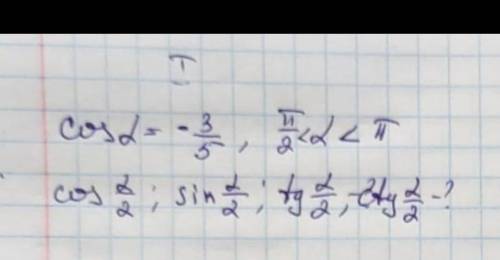 I
cos α = -3/5, π/2 < α < π
cos α/2; sin α/2; tg α/2, ctg α/2 - ?